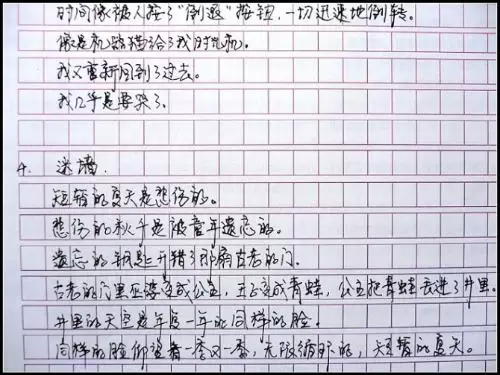 时间像被人按了“倒退”按钮，一切迅速地倒转。
像是机器猫给了我时光机。
我又重新回到了过去。
我几乎是要哭了。
4. 迷墙
短暂的夏天是悲伤的。
悲伤的秋千是被童年遗忘的。
遗忘的钥匙开错了那扇古老的门。
古老的门里巫婆变成公主，王子变成青蛙，公主把青蛙丢进了井里。
井里的天空是年复一年的同样的脸。
同样的脸仰望着一季又一季，无限循环的，短暂的夏天。